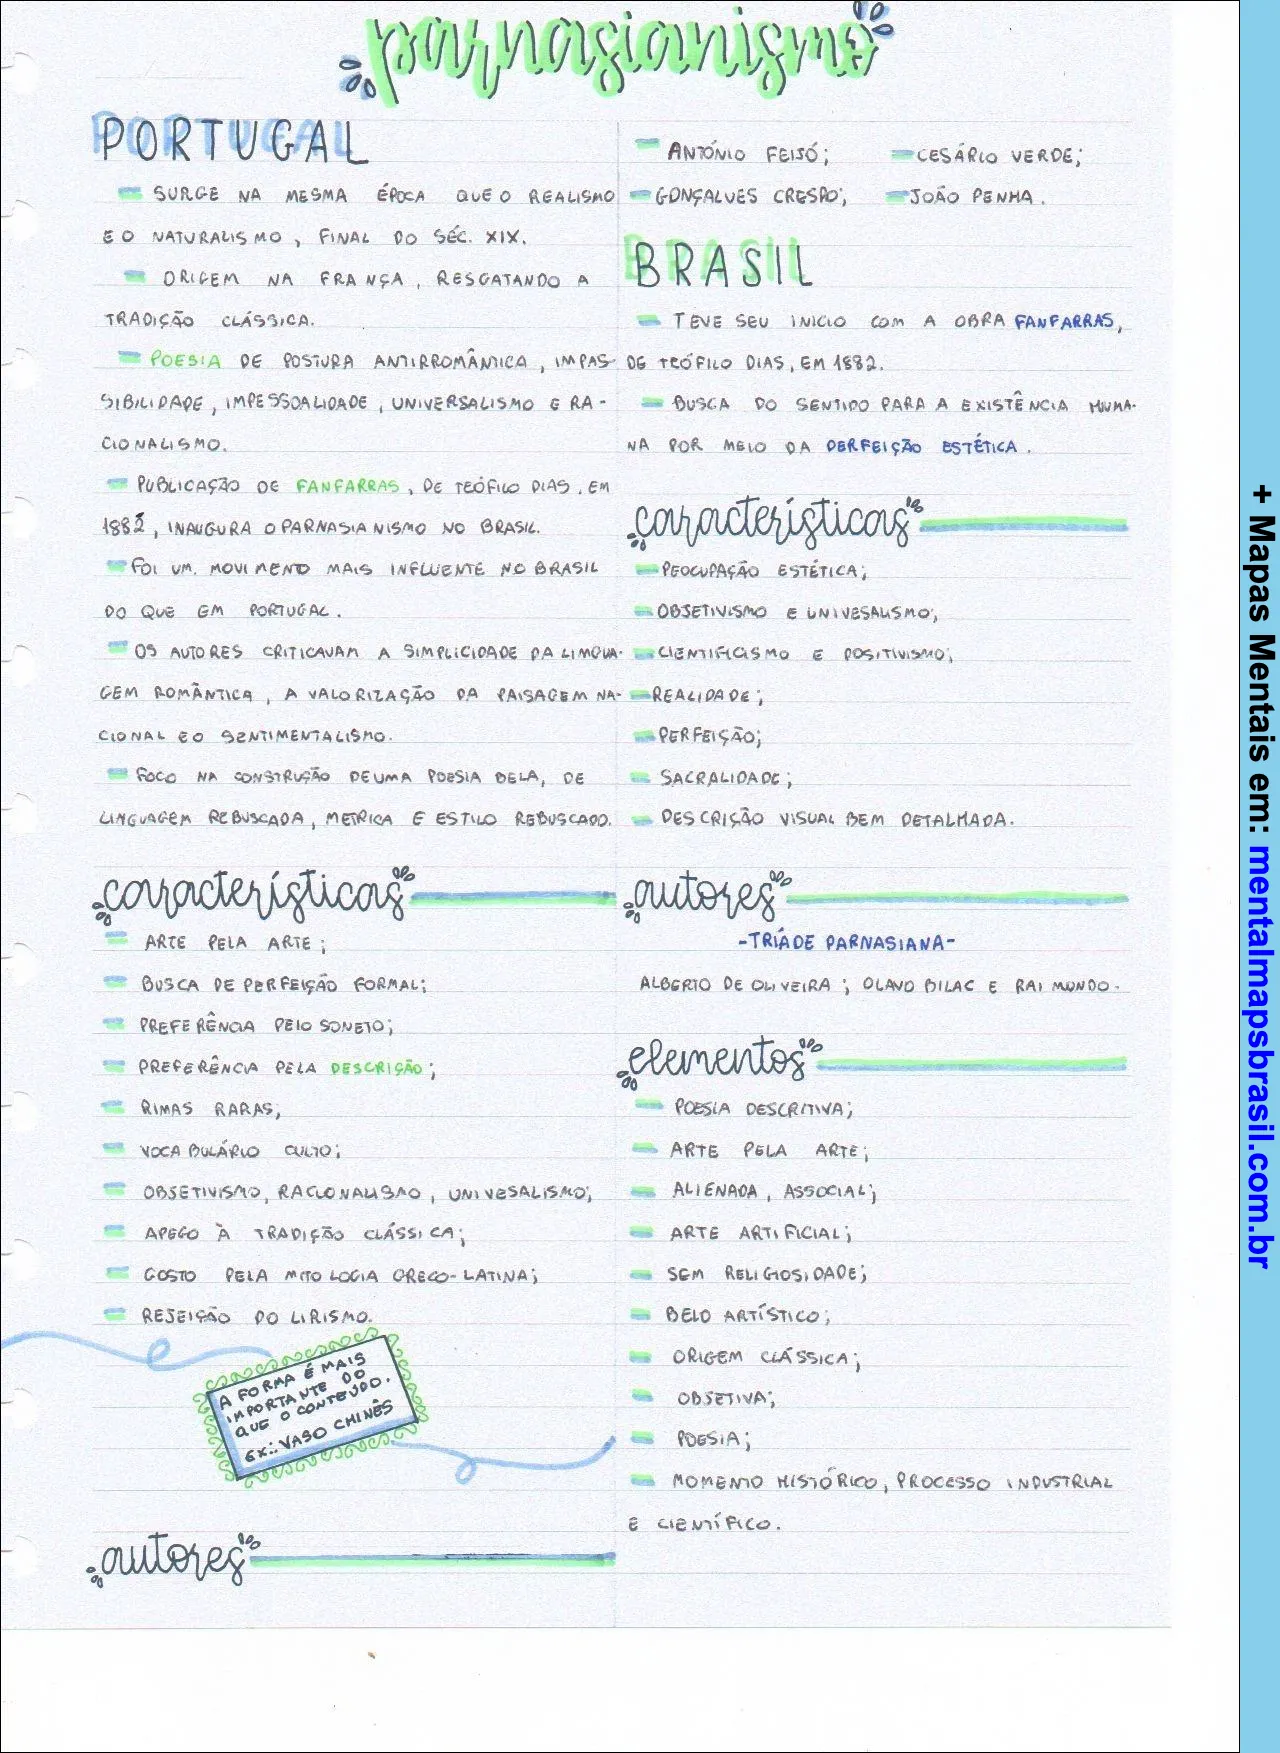 parnasianismo
PORTUGAL
SURGE NA MESMA ÉPOCA QUE O REALISMO
E O NATURALISMO, FINAL DO SÉC. XIX.
ORIGEM NA FRANÇA, RESGATANDO A
TRADIÇÃO CLÁSSICA.
POESIA DE POSTURA ANTIRROMÂNTICA, IMPAS-
SIBILIDADE, IMPESSOALIDADE, UNIVERSALISMO E RA-
CIONALISMO.
PUBLICAÇÃO DE FANFARRAS, DE TEÓFILO DIAS, EM
1882, INAUGURA O PARNASIANISMO NO BRASIL.
FOI UM MOVIMENTO MAIS INFLUENTE NO BRASIL
DO QUE EM PORTUGAL.
OS AUTORES CRITICAVAM A SIMPLICIDADE DA LINGUA-
GEM ROMÂNTICA, A VALORIZAÇÃO DA PAISAGEM NA-
CIONAL E O SENTIMENTALISMO.
FOCO NA CONSTRUÇÃO DE UMA POESIA BELA, DE
LINGUAGEM REBUSCADA, METRICA E ESTILO REBUSCADO.
características
ARTE PELA ARTE;
BUSCA DE PERFEIÇÃO FORMAL;
PREFERÊNCIA PELO SONETO;
PREFERÊNCIA PELA DESCRIÇÃO;
RIMAS RARAS;
VOCABULÁRIO CULTO;
OBJETIVISMO, RACIONALISMO, UNIVESALISMO;
APEGO À TRADIÇÃO CLÁSSICA;
GOSTO PELA MITOLOGIA GRECO-LATINA;
REJEIÇÃO DO LIRISMO.
A FORMA É MAIS
IMPORTANTE DO
QUE O CONTEÚDO.
EX.: VASO CHINÊS
autores
ANTÓNIO FEIJÓ; CESÁRIO VERDE;
GONÇALVES CRESPO; JOÃO PENHA.
BRASIL
TEVE SEU INICIO COM A OBRA FANFARRAS,
DE TEÓFILO DIAS, EM 1882.
BUSCA DO SENTIDO PARA A EXISTÊNCIA HUMA-
NA POR MEIO DA PERFEIÇÃO ESTÉTICA.
características
PEOCUPAÇÃO ESTÉTICA;
OBJETIVISMO E UNIVESALISMO;
CIENTIFICISMO E POSITIVISMO;
REALIDADE;
PERFEIÇÃO;
SACRALIDADE;
DESCRIÇÃO VISUAL BEM DETALHADA.
autores
-TRÍADE PARNASIANA-
ALBERTO DE OLIVEIRA; OLAVO BILAC E RAIMUNDO.
elementos
POESIA DESCRITIVA;
ARTE PELA ARTE;
ALIENADA, ASSOCIAL;
ARTE ARTIFICIAL;
SEM RELIGIOSIDADE;
BELO ARTÍSTICO;
ORIGEM CLÁSSICA;
OBJETIVA;
POESIA;
MOMENTO HISTÓRICO, PROCESSO INDUSTRIAL
E CIENTÍFICO.
+ Mapas Mentais em: mentalmapsbrasil.com.br